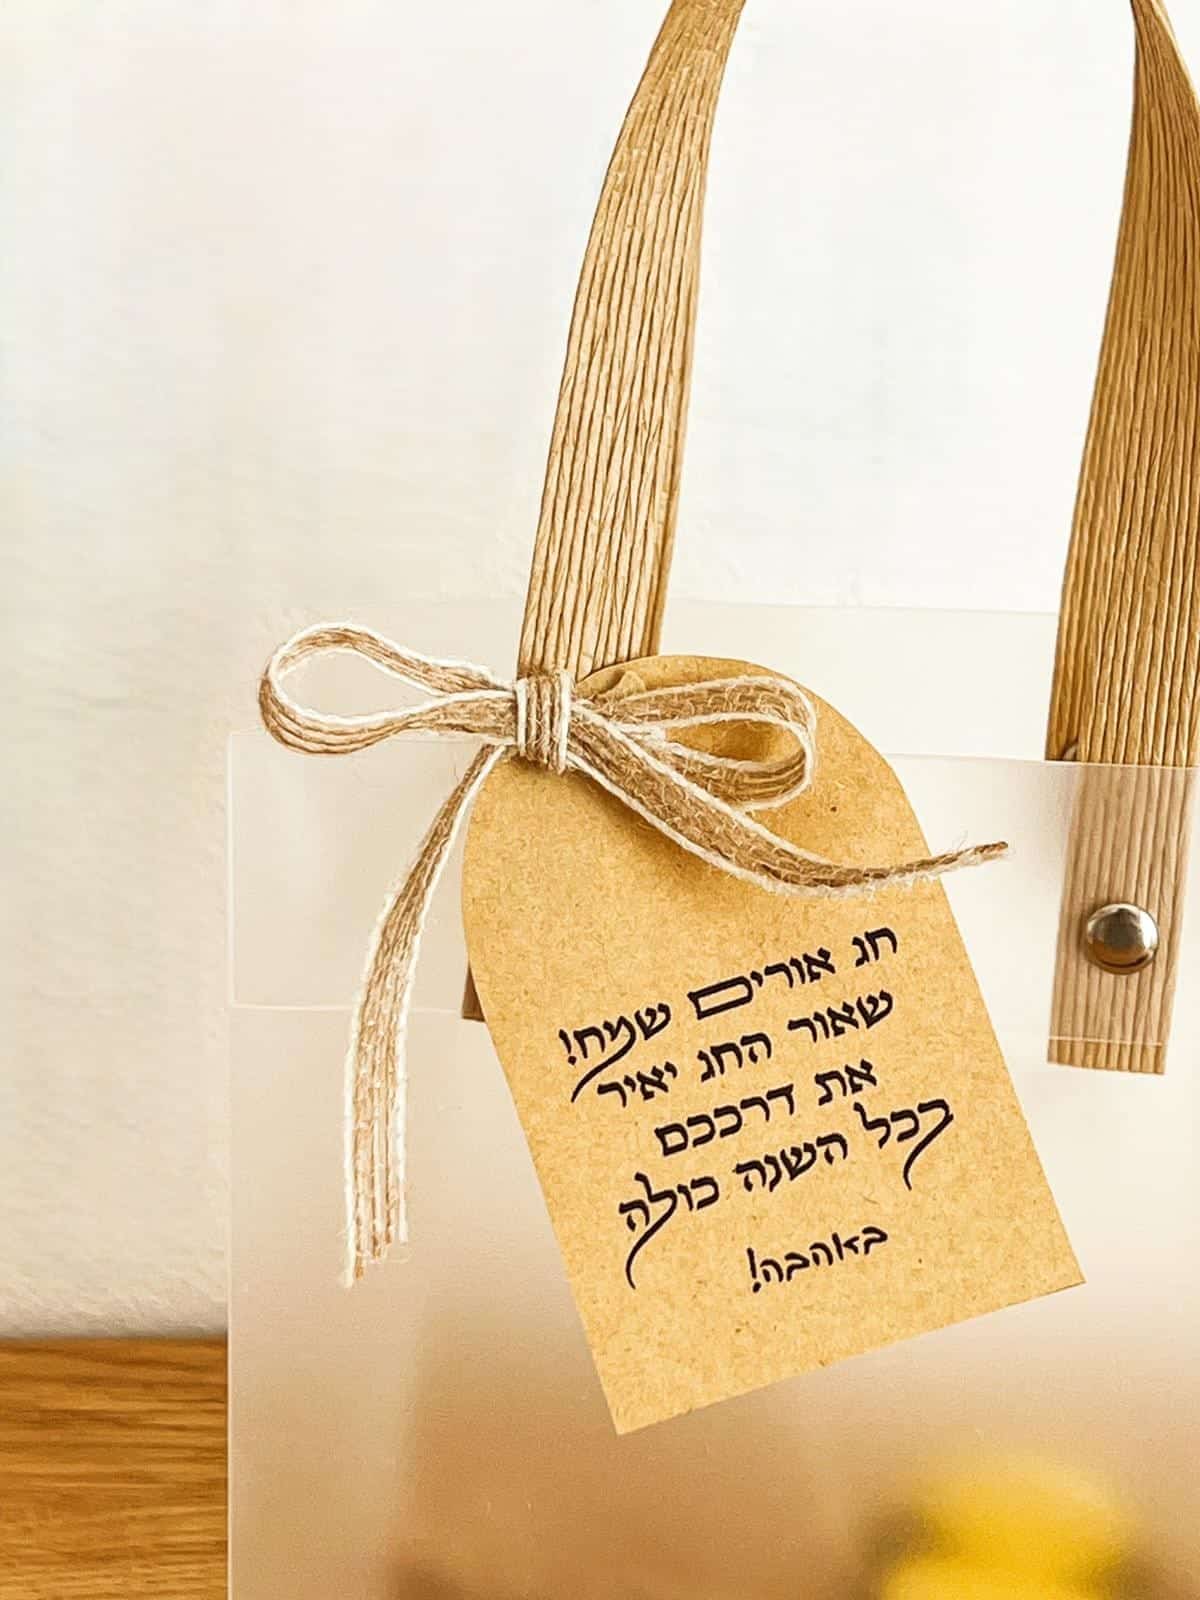 חג אורים שמח!
שאור החג יאיר
את דרככם
בכל השנה כולה
באהבה!